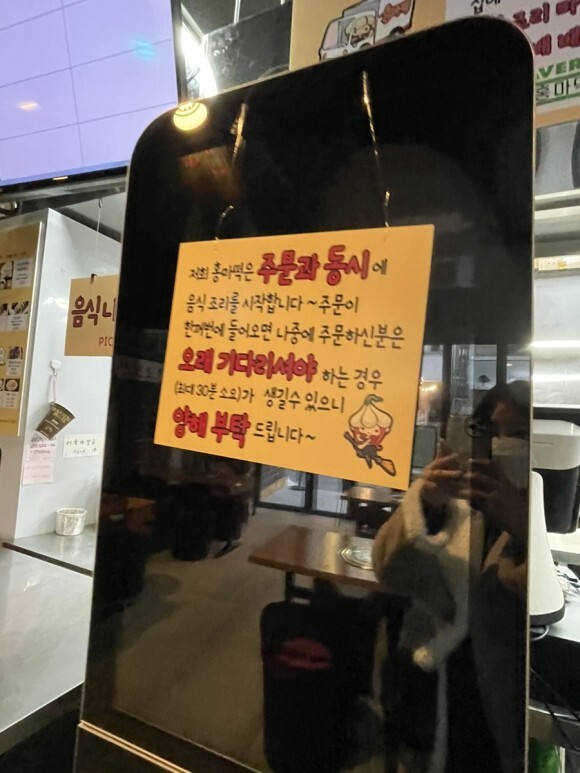 저희 홍마떡은 주문과 동시에
음식 조리를 시작합니다~주문이
한꺼번에 들어오면 나중에 주문하신분은
오래 기다리셔야 하는 경우
(최대 30분 소요)가 생길수 있으니
양해 부탁 드립니다~
음식나
PIC
조리